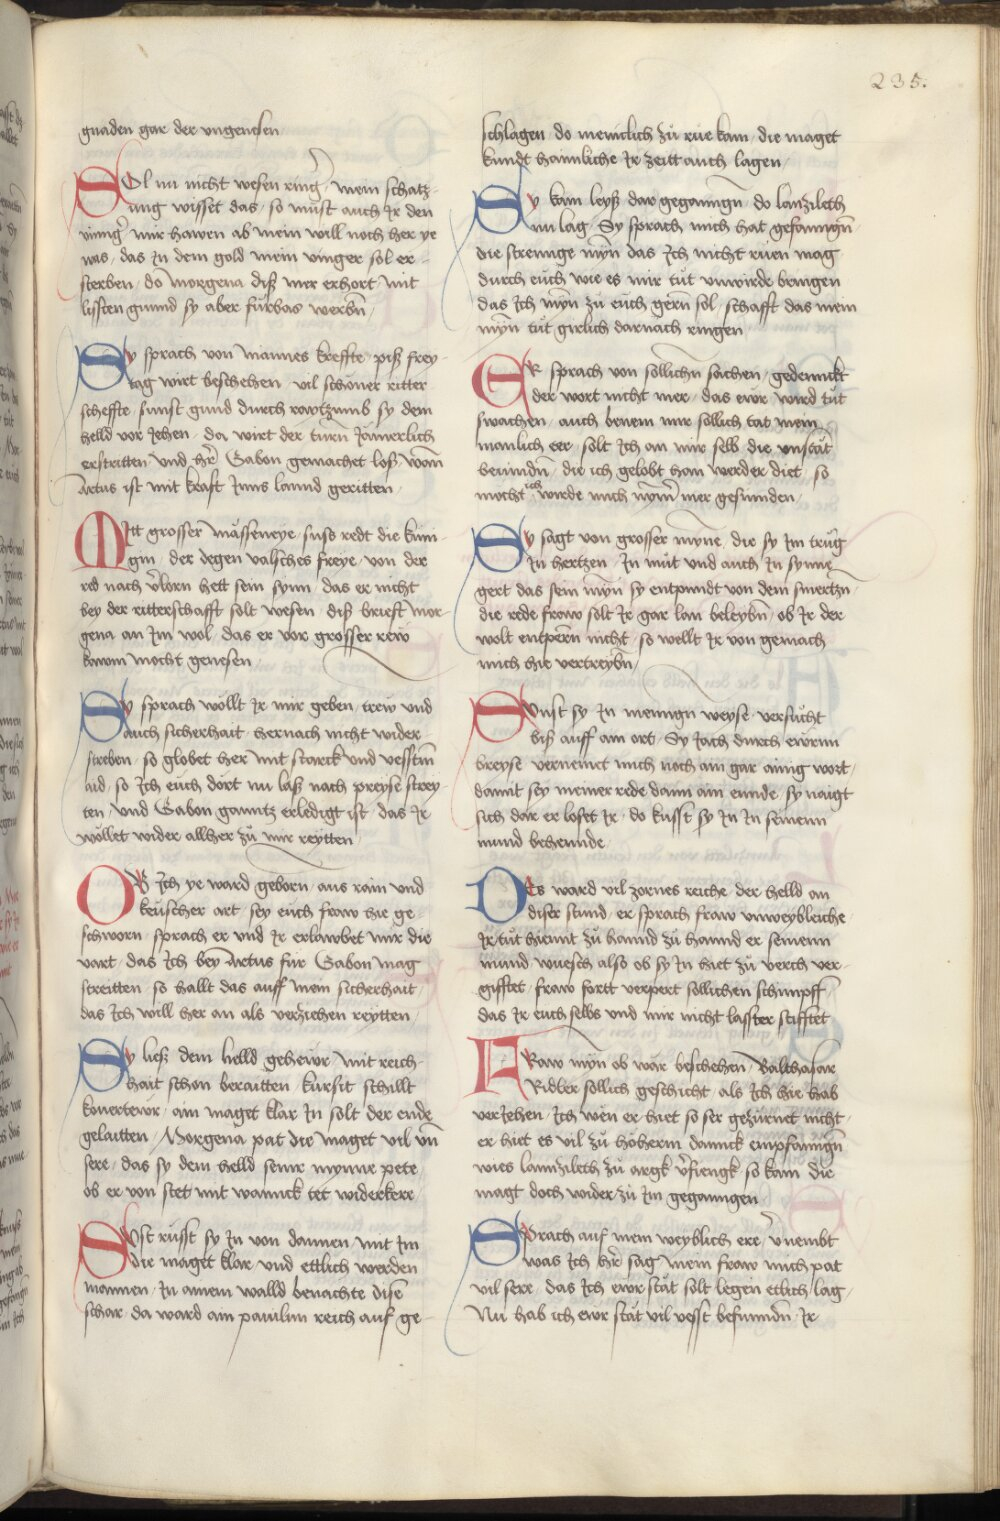 235.
gnaden gar der ungenesen
SOl nu nicht wesen ring' / mein schatz-
ung wisset das / so must auch Ir den
vinng' mir hawen ab mein will noch her ye
was / das In dem gold mein vinger sol er-
sterben / do morgena diß mer erhort mit
lissten gunnd sy aber fürbas werbn /
Sy sprach von mannes kreffte / piß frey-
tag wirt beschehen / vil schöner ritter
scheffte / sunst gund durch rawtzunb sy dem
helld vor Jehen / da wirt der turn Jamerlich
erstritten und hr Gabon gemachet loß / wann
Artus ist mit kraft Inns lannd geritten /
Mitt grosser mässeneye / suso redt die künn-
gin / der degen valsches freye / von der
red nach vlorn hett sein synn / das er nicht
bey der ritterschafft solt wesen / diß brieft mor-
gena an Im wol / das er vor grosser rew
kawm mocht genesen /
Sy sprach wöllt Ir mir geben / trew und
auch sicherhait / hernach nicht wider-
streben / so globet her mit starck und vesstim
aid / so Ich euch dort nu laß nach preyse strey-
ten / und Gabon ganntz erledigt ist / das Ir
wöllet wider allher zu mir reytten /
OB Ich ye ward geborn / aus rain und
keüscher art / sey euch fraw hie ge-
schworn / sprach er und Ir erlawbet mir die
vart / das Ich bey Artus für Gabon mag
streitten / so hallt das auff mein sicherhait /
das Ich will her an als verziehen reytten /
Sy ließ dem helld gehewr / mit reich-
hait schon beraitten / kursit schillt
kovertewr / ain maget klar In solt der ende
gelaitten / Morgena pat die maget vil vnd
sere / das sy dem helld seinr mynne pete
ob er von stet mit wannck tet widerkere /
SUst russt sy In von dannen / mit Im
die maget klar / und ettlich werden
mannen / In ainem walld benachte dise
schar / da ward ain paulun reich auf ge-
schlagen / do meniclich zu rue kam / die maget
kundt hainliche Ir zeitt auch lagen /
Sy kam leyß dar geganngn / do lanzileth
inn lag / Sy sprach mich hat gefanngn
die strennge myn das Ich nicht rüen mag
durch euch wie es mir tut unwirde brangen
das Ich myn zu euch gern sol / schafft das mein
myn tut girlich darnach ringen /
ER sprach von sollichn sachen / gedennckt
der wort nicht mer / das ewr wird tut
swachen / auch benem mir sollich tat mein
manlich eer / solt Ich an mir selb die unstät
bevindn / die ich gelobt han werder diet / so
mocht ich wirde mich nymer mer gesunden /
Sy sagt von grosser mynne / die sy Im trüg
In hertzen / In mut und auch In synne
gert das sein myn sy entpundt von dem smertzn
die rede fraw solt Ir gar lan beleybn / ob Ir der
wolt entpern nicht / so wellt Ir von gemach
mich hie vertreybn /
SUnst sy In menngn weyse / versucht
biß auff ain ort / Sy Jach durch ewrnn
breyse vernemet mich noch ain gar ainig wort /
damit sey meiner rede dann ain ennde / sy naigt
sich dar er loset Ir / do kusst sy In In seinenn
mund behennde
DEs ward vil zornes reiche / der helld an
diser stund / er sprach fraw unweybleiche
Ir tüt hiemit zu hannd zu hannd er seinenn
mund / wuesch also ob sy In hiet zu verch ver-
gifftet / fraw fortt verpert sollichen schimpff
das Ir euch selbs und mir nicht lasster stifftet
FRaw myn ob wär beschehen / Balthasar
Ridler sollich geschicht / als Ich hie hab
verJehen / Ich wen er hiet so ser gezürnet nicht /
er hiet es vil zu höherm dannck empfanngn
wies lannzileth zu argk vfiengk / so kam die
magt doch wider zu Im geganngen
SPrach auf mein weyblich ere / vnembt
was Ich hr sag / mein fraw mich pat
vil sere / das Ich ewr stät solt legen etlich lag /
Nu hab ich ewr stät vil vesst befunndn / Ir